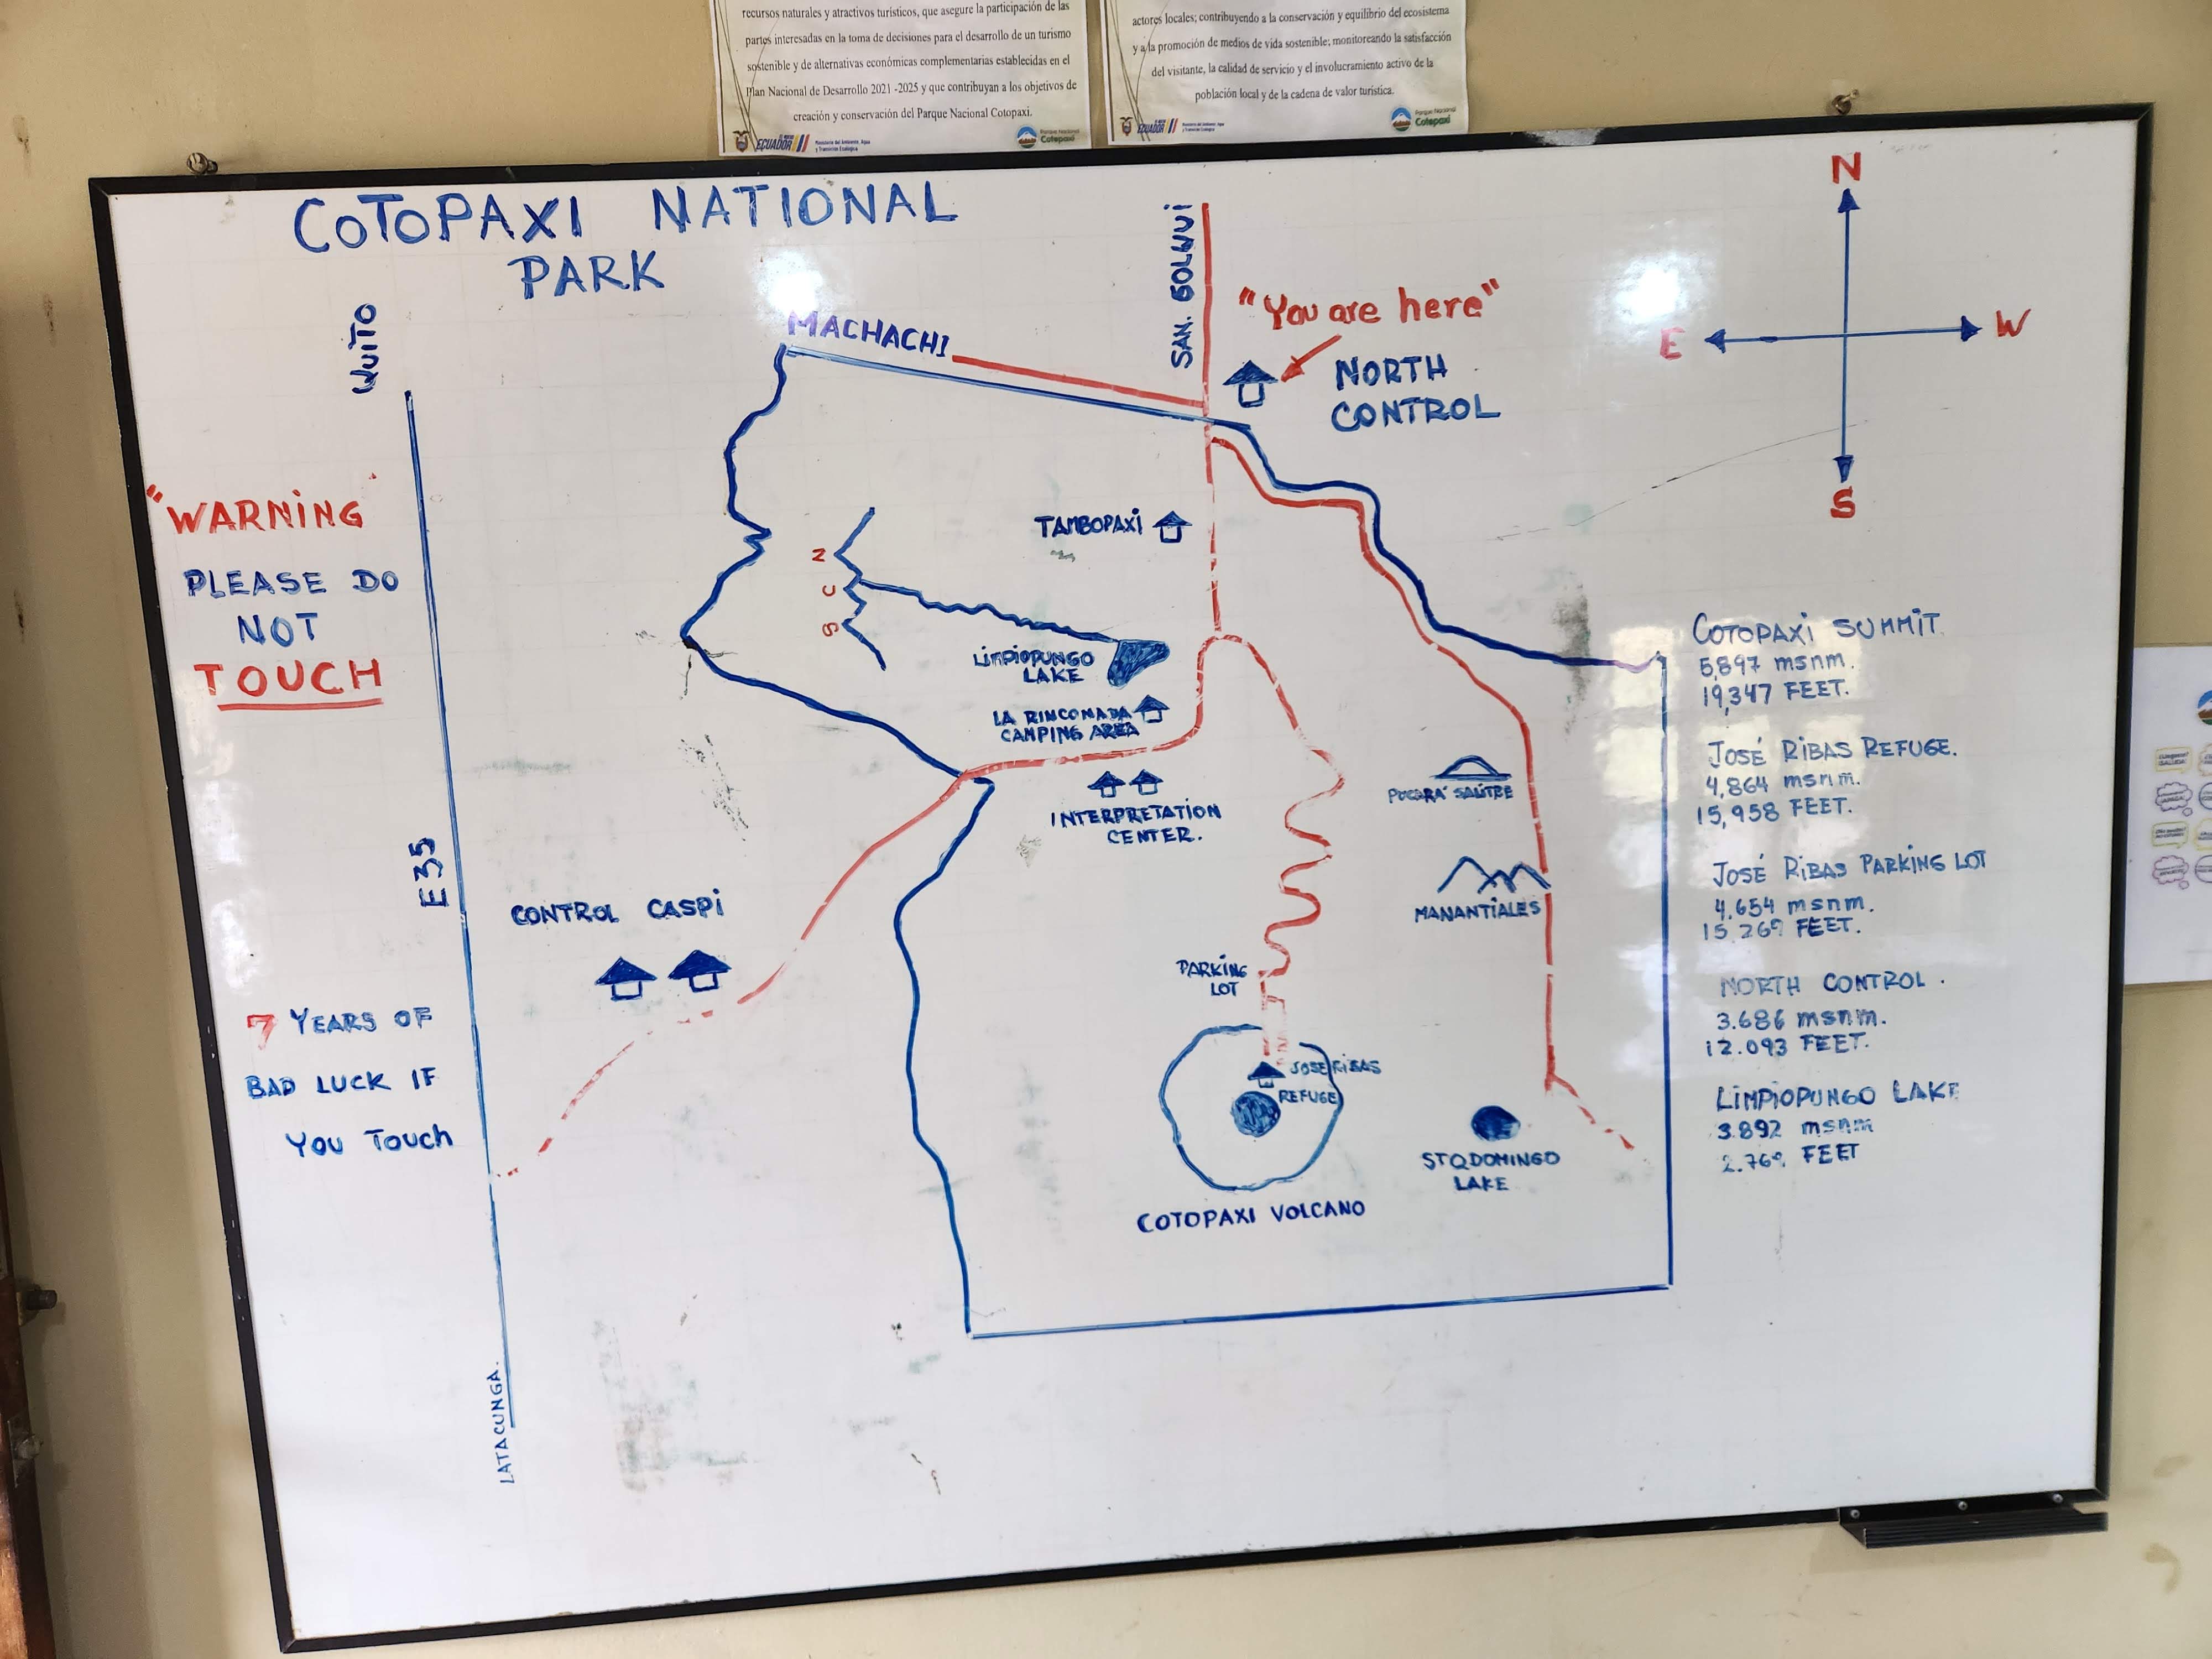 recursos naturales y atractivos turísticos, que asegure la participación de las
partes interesadas en la toma de decisiones para el desarrollo de un turismo
sostenible y de alternativas económicas complementarias establecidas en el
Plan Nacional de Desarrollo 2021 -2025 y que contribuyan a los objetivos de
creación y conservación del Parque Nacional Cotopaxi.
ECUADOR
Ministerio del Ambiente, Agua
y Transición Ecológica
Parque Nacional
Cotopaxi
actores locales; contribuyendo a la conservación y equilibrio del ecosistema
y a la promoción de medios de vida sostenible; monitoreando la satisfacción
del visitante, la calidad de servicio y el involucramiento activo de la
población local y de la cadena de valor turística.
ECUADOR
Ministerio del Ambiente, Agua
y Transición Ecológica
Parque Nacional
Cotopaxi
COTOPAXI NATIONAL
PARK
QUITO
MACHACHI
SAN. GOLQUI
"You are here"
NORTH
CONTROL
N
E
W
S
"WARNING
PLEASE DO
NOT
TOUCH
TAMBOPAXI
N
C
S
LIMPIOPUNGO
LAKE
LA RINCONADA
CAMPING AREA
INTERPRETATION
CENTER.
PUCARÁ SALITRE
MANANTIALES
E35
CONTROL CASPI
PARKING
LOT
JOSE RIBAS
REFUGE
COTOPAXI VOLCANO
STO DOMINGO
LAKE
7 YEARS OF
BAD LUCK IF
YOU TOUCH
LATACUNGA.
COTOPAXI SUMMIT
5,897 msnm.
19,347 FEET.
JOSÉ RIBAS REFUGE.
4,864 msnm.
15,958 FEET.
JOSÉ RIBAS PARKING LOT
4.654 msnm.
15.269 FEET.
NORTH CONTROL.
3.686 msnm.
12.093 FEET.
LIMPIOPUNGO LAKE
3.892 msnm
2.769 FEET